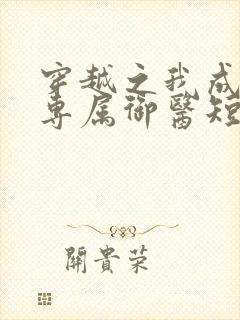 穿越之我成
专属御醫短
關貴荣